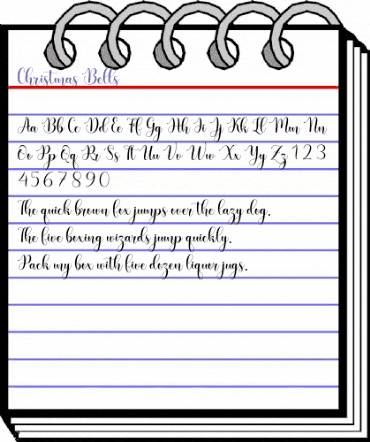 Christmas Bells
Aa Bb Cc Dd Ee Ff Gg Hh Ii Jj Kk Ll Mm Nn
Oo Pp Qq Rr Ss Tt Uu Vv Ww Xx Yy Zz 1 2 3
4 5 6 7 8 9 0
The quick brown fox jumps over the lazy dog.
The five boxing wizards jump quickly.
Pack my box with five dozen liquor jugs.